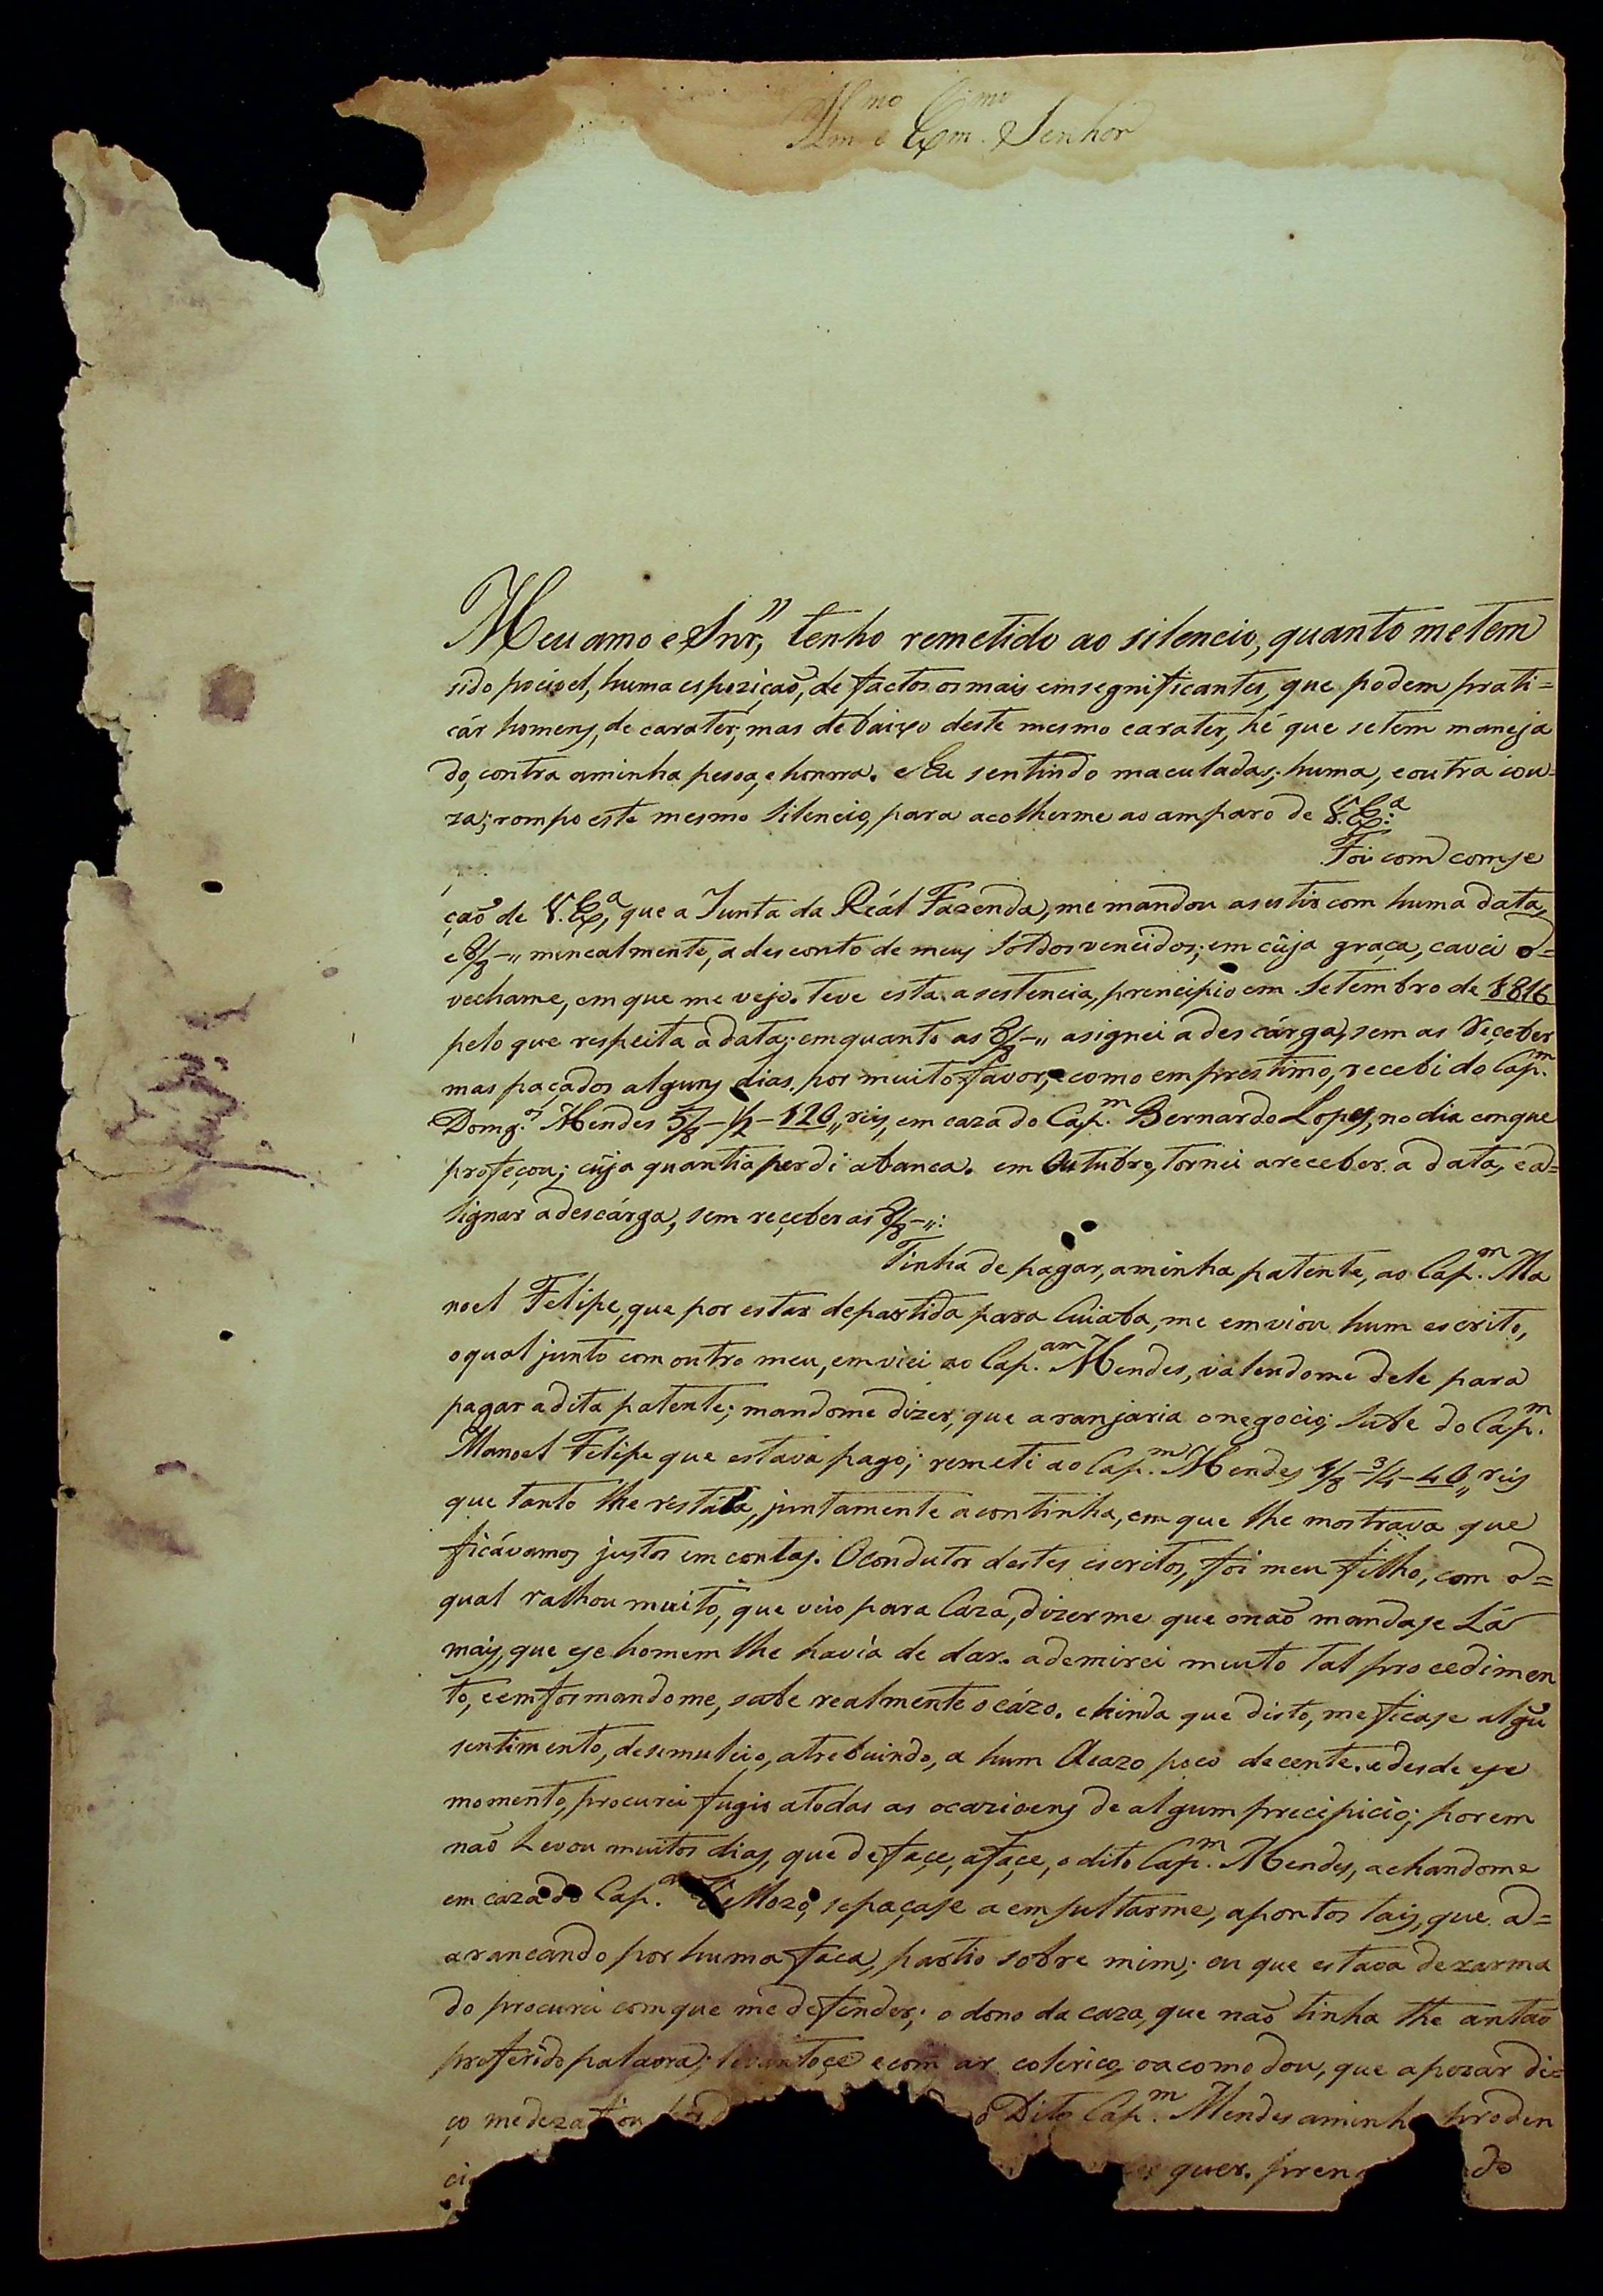 Illmo e Exmo. Senhor
Meu amo e Snr, tenho remetido ao silencio, quanto metem
sido pocivel, huma espozição, de factos os mais emsegnificantes, que podem prati=
cár homens, de carater; mas debaixo deste mesmo carater, hé que setem maneja
do, contra aminha pesoa, e honrra. e Eu sentindo maculadas; huma, eoutra cou=
za; rompo este mesmo silencio, para acolherme ao amparo de V. Exa.
Foi com comse
ção de V. Exa, que a Junta da Reál Fazenda, me mandou asestir com huma data,
e 8/8-,, mencalmente, a desconto de meus Soldos vencidos; em cuja graça, cavei o=
vechame, em que me vejo. teve esta asestencia, prencipio em Setembro de 1816
pelo que respeita adata; emquanto as 8/8-,, asignei a descárga, sem as Receber
mas paçados alguns dias, por muito favor, e como emprestimo, recebi do Capm.
Domgs. Mendes 5/8-1/2-120,, reis, em caza do Capm. Bernardo Lopes, no dia emque
profeçou; cuja quantia perdi abanca. em Outubro, tornei areceber a data, ea=
signar adescárga, sem reçeber as 8/8-,,:
Tinha de pagar, aminha patente, ao Capm. Ma
noel Felipe, que por estar departida para Cuiaba, me emviou hum escrito,
oqual junto com outro meu, emviei ao Capam. Mendes, valendome dele para
pagar adita patente; mandome dizer; que aranjaria onegocio; Sube do Capm.
Manoel Felipe que estava pago; remeti ao Capm. Mendes 1/8-3/4-40,, reis
que tanto lhe restava, juntamente acontinha, em que lhe mostrava que
ficávamos justos em contas. Ocondutor destes escritos, foi meu filho, com o=
qual ralhou muito, que veio para Caza, dizerme que onaõ mandase Lá
mais, que ese homem lhe havia de dar. ademirei muito tal procedimen
to, eemformandome, sube realmente ocázo. ehinda que disto, me ficase algũ
sentimento, desemuleio, atrebuindo, a hum Acazo poco decente. edesde ese
momento, procurei fugir atodas as ocazioens de algum precipicio; porem
naõ Levou muitos dias, que de façe, afaçe, o dito Capm. Mendes, achandome
em caza do Cap. Vellozo, sepaçase a emsultarme, apontos tais, que a=
arancando por huma faca, partio sobre mim; eu que estava dezarma
do procurei comque me defender; o dono da caza, que naõ tinha the antaõ
proferido palavra; levantoçe ecom ar colerico, oacomodou, que apezar di=
ço medezafiou o Dito Capm. Mendes aminha proden
ci quer. pren do